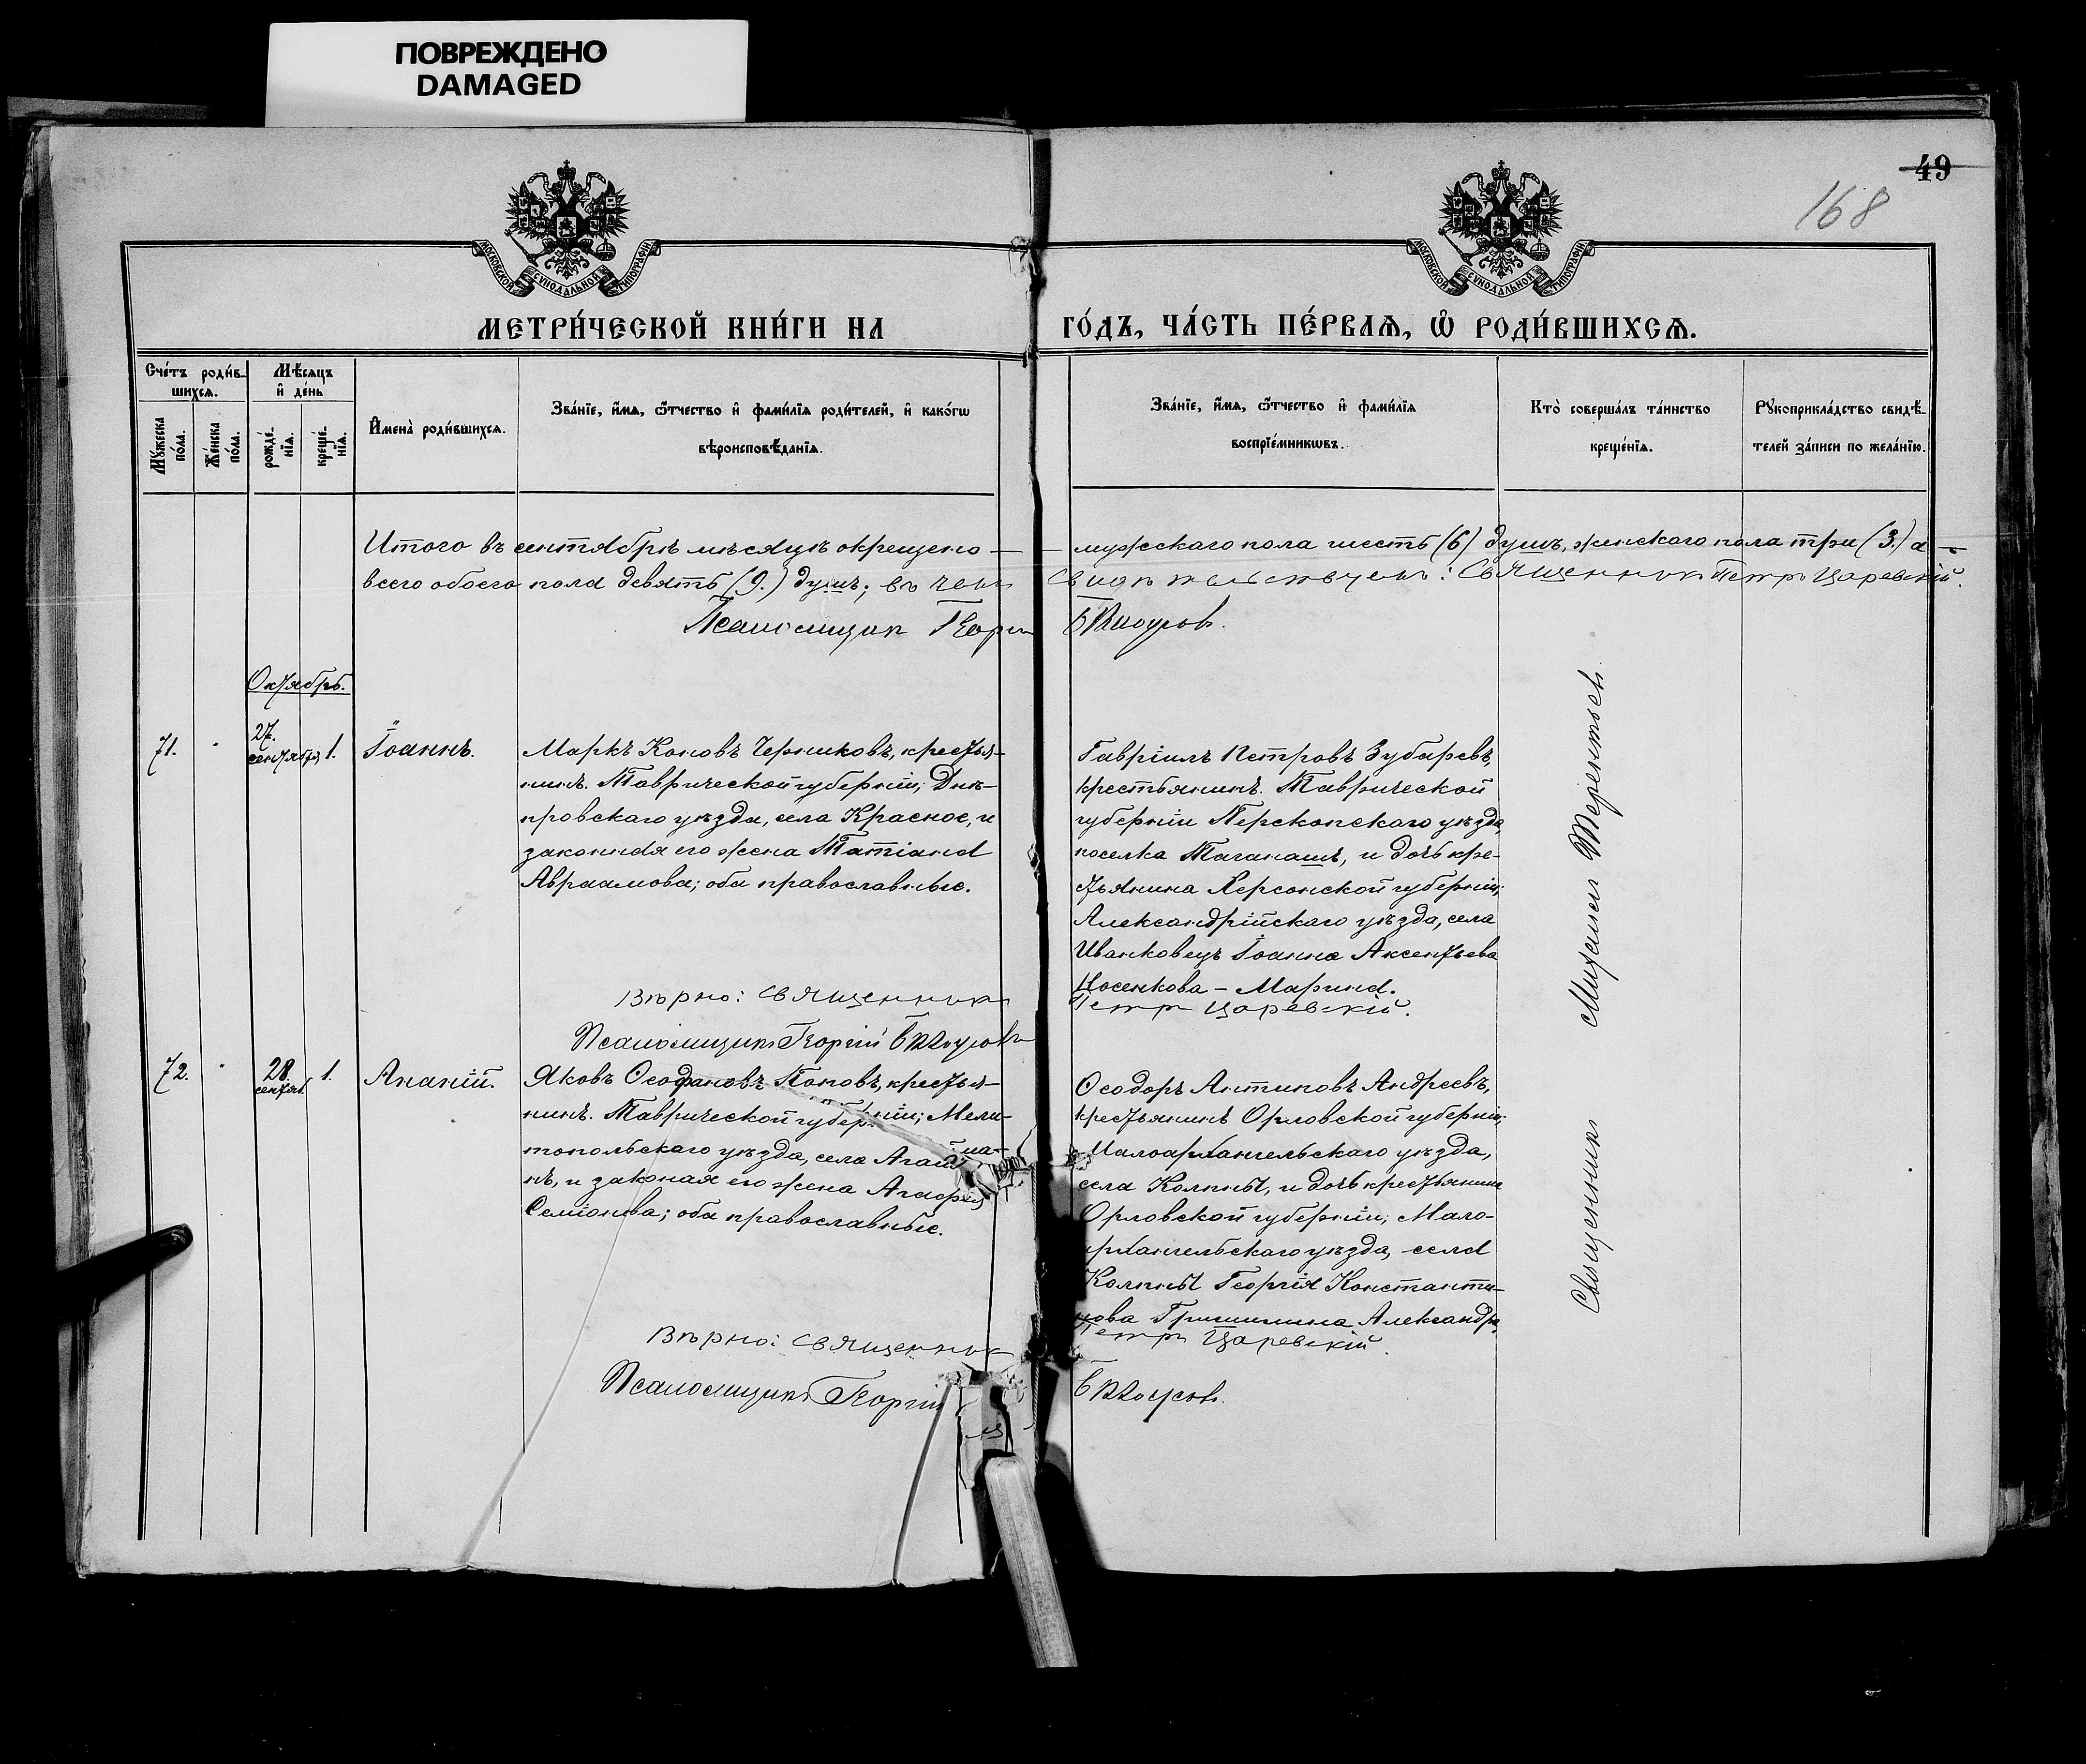 ПОВРЕЖДЕНО
DAMAGED
49
168
МОСКОВСКОЙ СѴНОДАЛЬНОЙ ТИПОГРАФІИ
МОСКОВСКОЙ СѴНОДАЛЬНОЙ ТИПОГРАФІИ
МЕТРИ́ЧЕСКОЙ КНИ́ГИ НА
ГО́ДЪ, ЧА́СТЬ ПЕ́РВАѦ, Ѡ РОДИ́ВШИХСѦ.
Сче́тъ роди́в-
шихсѧ.
Мꙋ́жеска по́ла.
Же́нска по́ла.
Мѣ́сѧцъ
и҆ де́нь
рожде́-
нїѧ.
креще́-
нїѧ.
И҆мена̀ роди́вшихсѧ.
Зва́нїе, и҆́мѧ, ѻ҆́тчество и҆ фами́лїѧ роди́телей, и҆ како́гѡ
вѣроисповѣ́данїѧ.
Зва́нїе, и҆́мѧ, ѻ҆́тчество и҆ фами́лїѧ
воспрїе́мникѡвъ.
Кто̀ соверша́лъ та́инство
креще́нїѧ.
Рꙋкоприкла́дство свидѣ́-
телей за́писи по жела́нїю.
Итого въ сентябрѣ мѣсяцѣ окрещено — — мужскаго пола шесть (6) душъ, женскаго пола три (3.) а —
всего обоего пола девять (9.) душъ; въ чемъ свидѣтельствуемъ: Священникъ Петръ Царевскій.
Псаломщикъ Георгій
Октябрь.
71.
27.
сентября
1.
Іоаннъ.
Маркъ Кононовъ Черниковъ, крестья-
нинъ Таврической губерніи, Днѣ-
провскаго уѣзда, села Красное, и
законная его жена Татіана
Авраамова; оба православные.
Гавріилъ Петровъ Зубаревъ,
крестьянинъ Таврической
губерніи Перекопскаго уѣзда,
поселка Таганашъ, и дочь кре-
стьянина Херсонской губерніи,
Александрійскаго уѣзда, села
Иванковецъ Іоанна Аксентьева
Носенкова – Марина.
Вѣрно: Священникъ Петръ Царевскій.
Псаломщикъ Георгій
Священникъ Михаилъ Терентьевъ.
72.
28.
сентяб.
1.
Ананій.
Яковъ Ѳеофановъ Поповъ, крестья-
нинъ Таврической губерніи; Мели-
топольскаго уѣзда, села Агайма-
нъ, и законая его жена Агафія
Семіонова; оба православные.
Ѳеодоръ Антиповъ Андреевъ,
крестьянинъ Орловской губерніи,
Малоархангельскаго уѣзда,
села Колпны, и дочь крестьянина
Орловской губерніи, Мало-
архангельскаго уѣзда, села
Колпны Георгія Константи-
нова Гришинина Александра
Вѣрно: Священникъ Петръ Царевскій.
Псаломщикъ Георгій